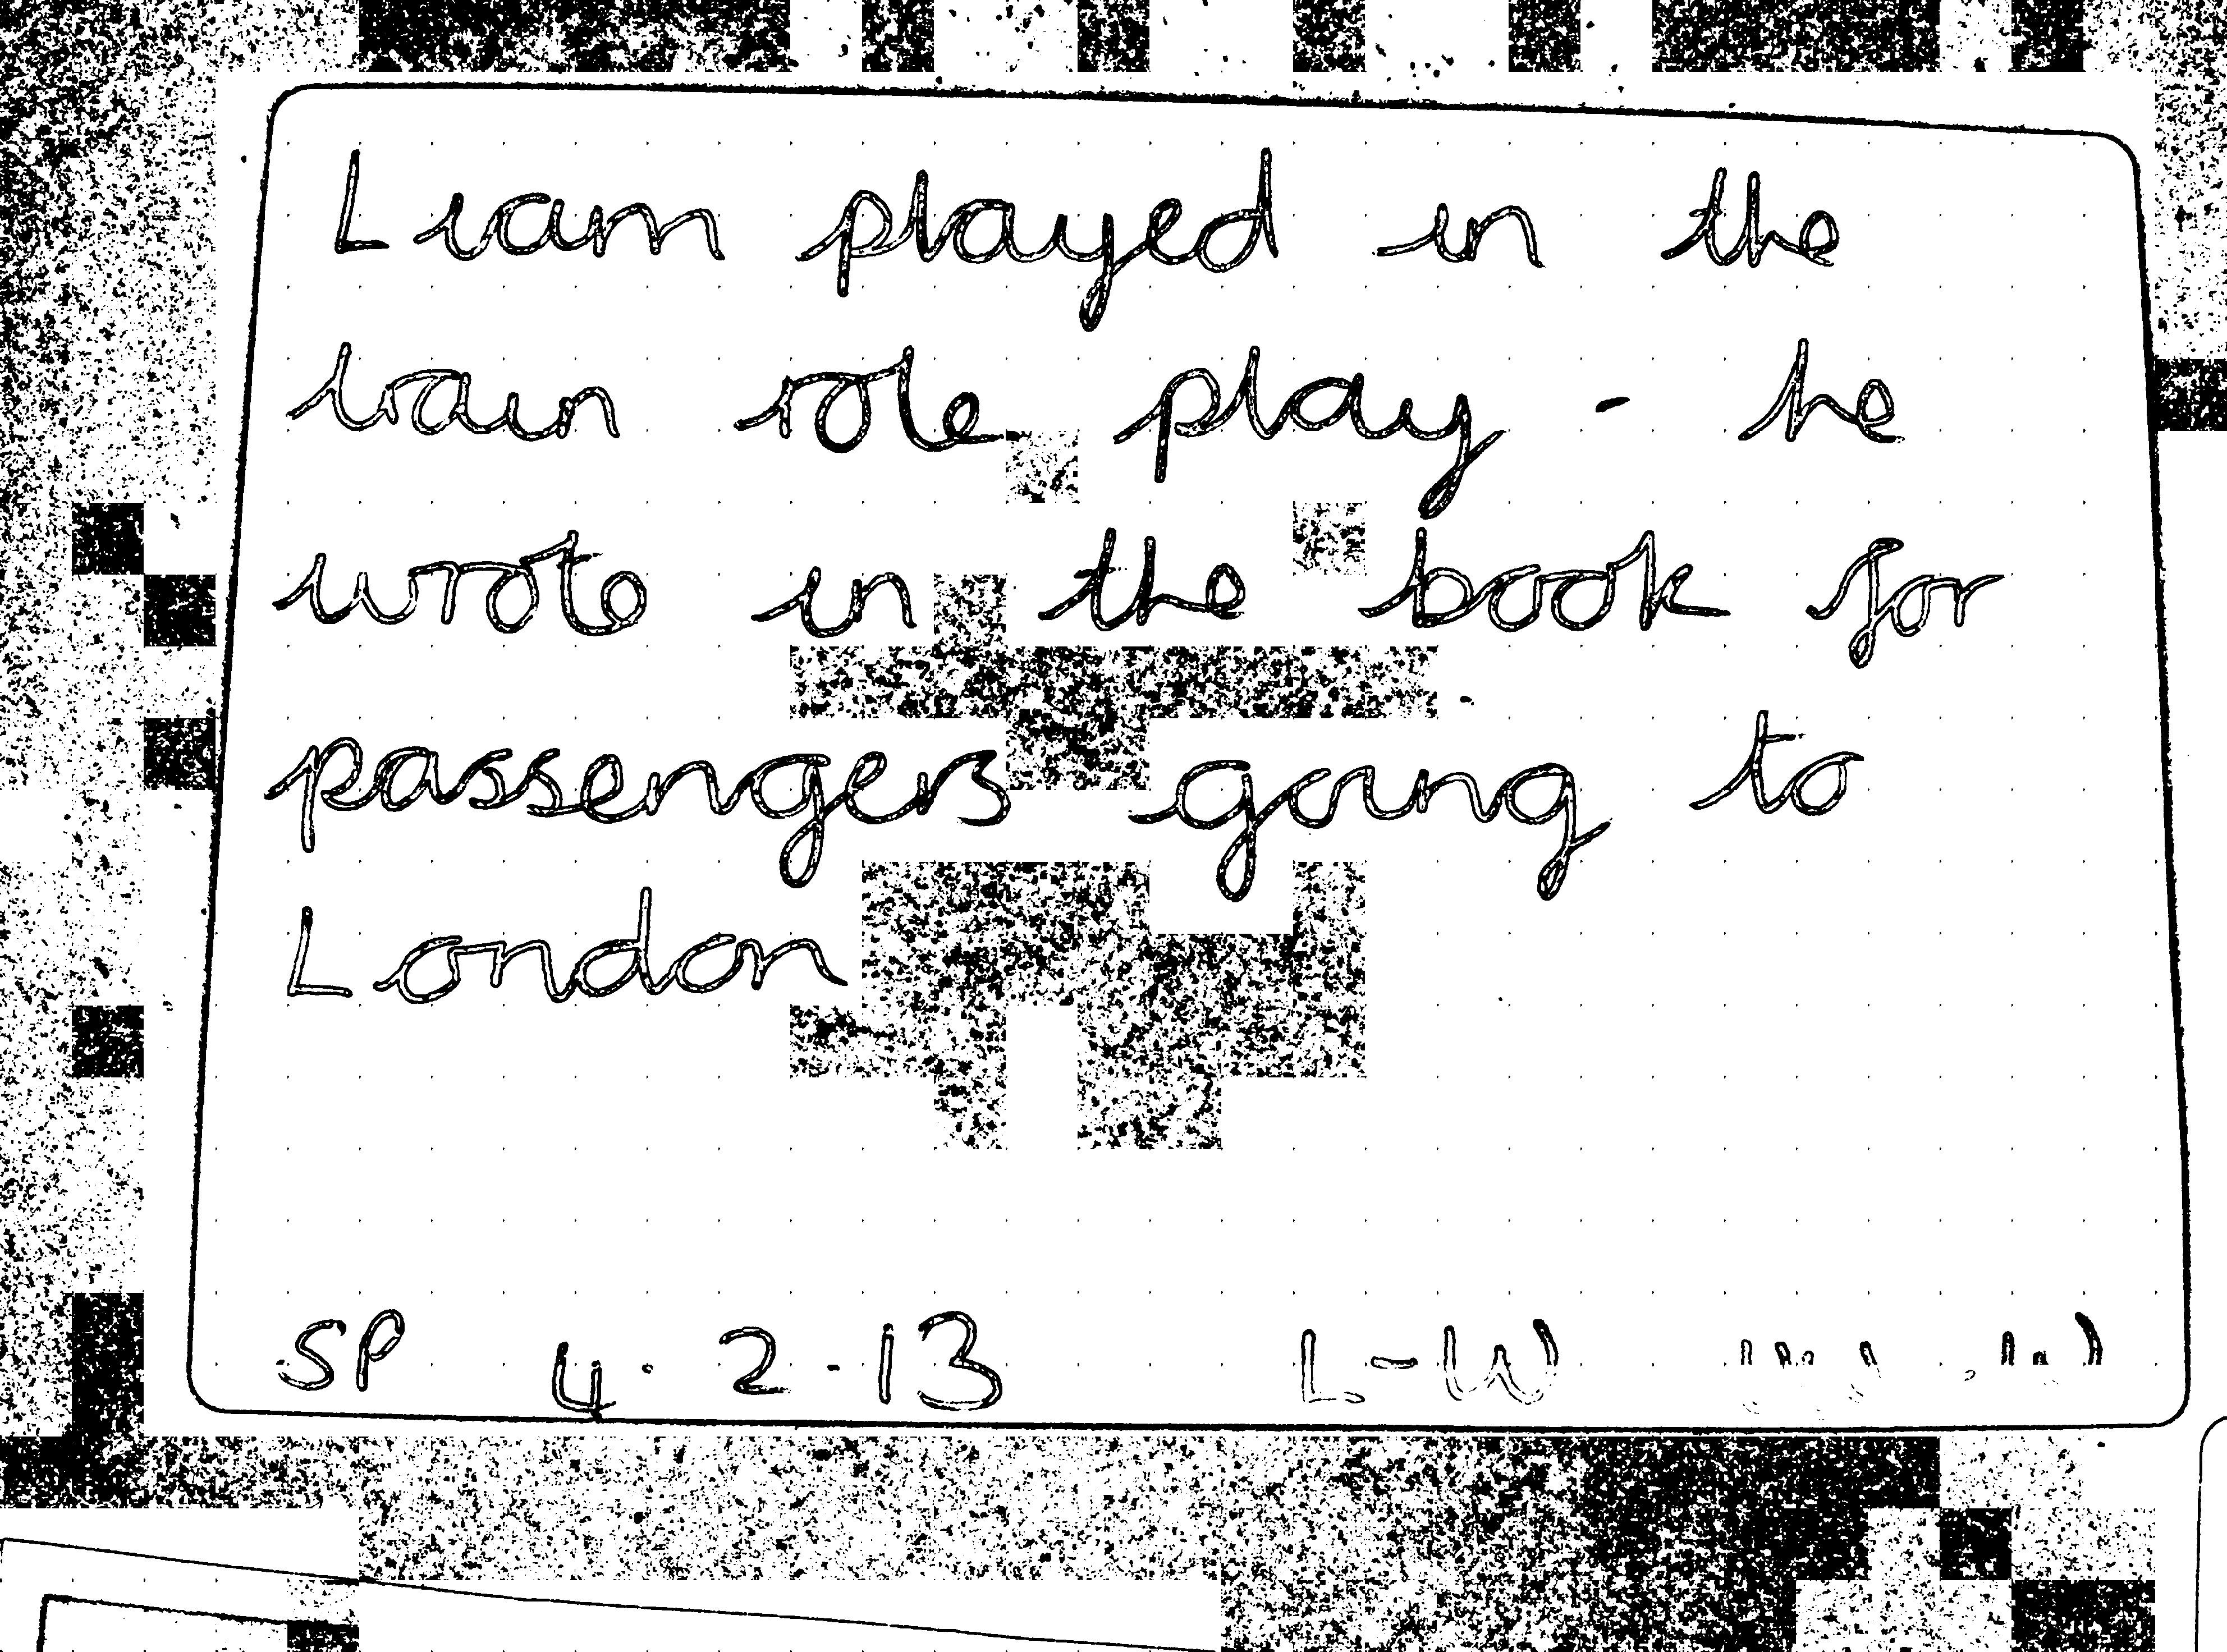 Liam played in the
train role play - he
wrote in the book for
passengers going to
London
SP 4.2.13 L-W